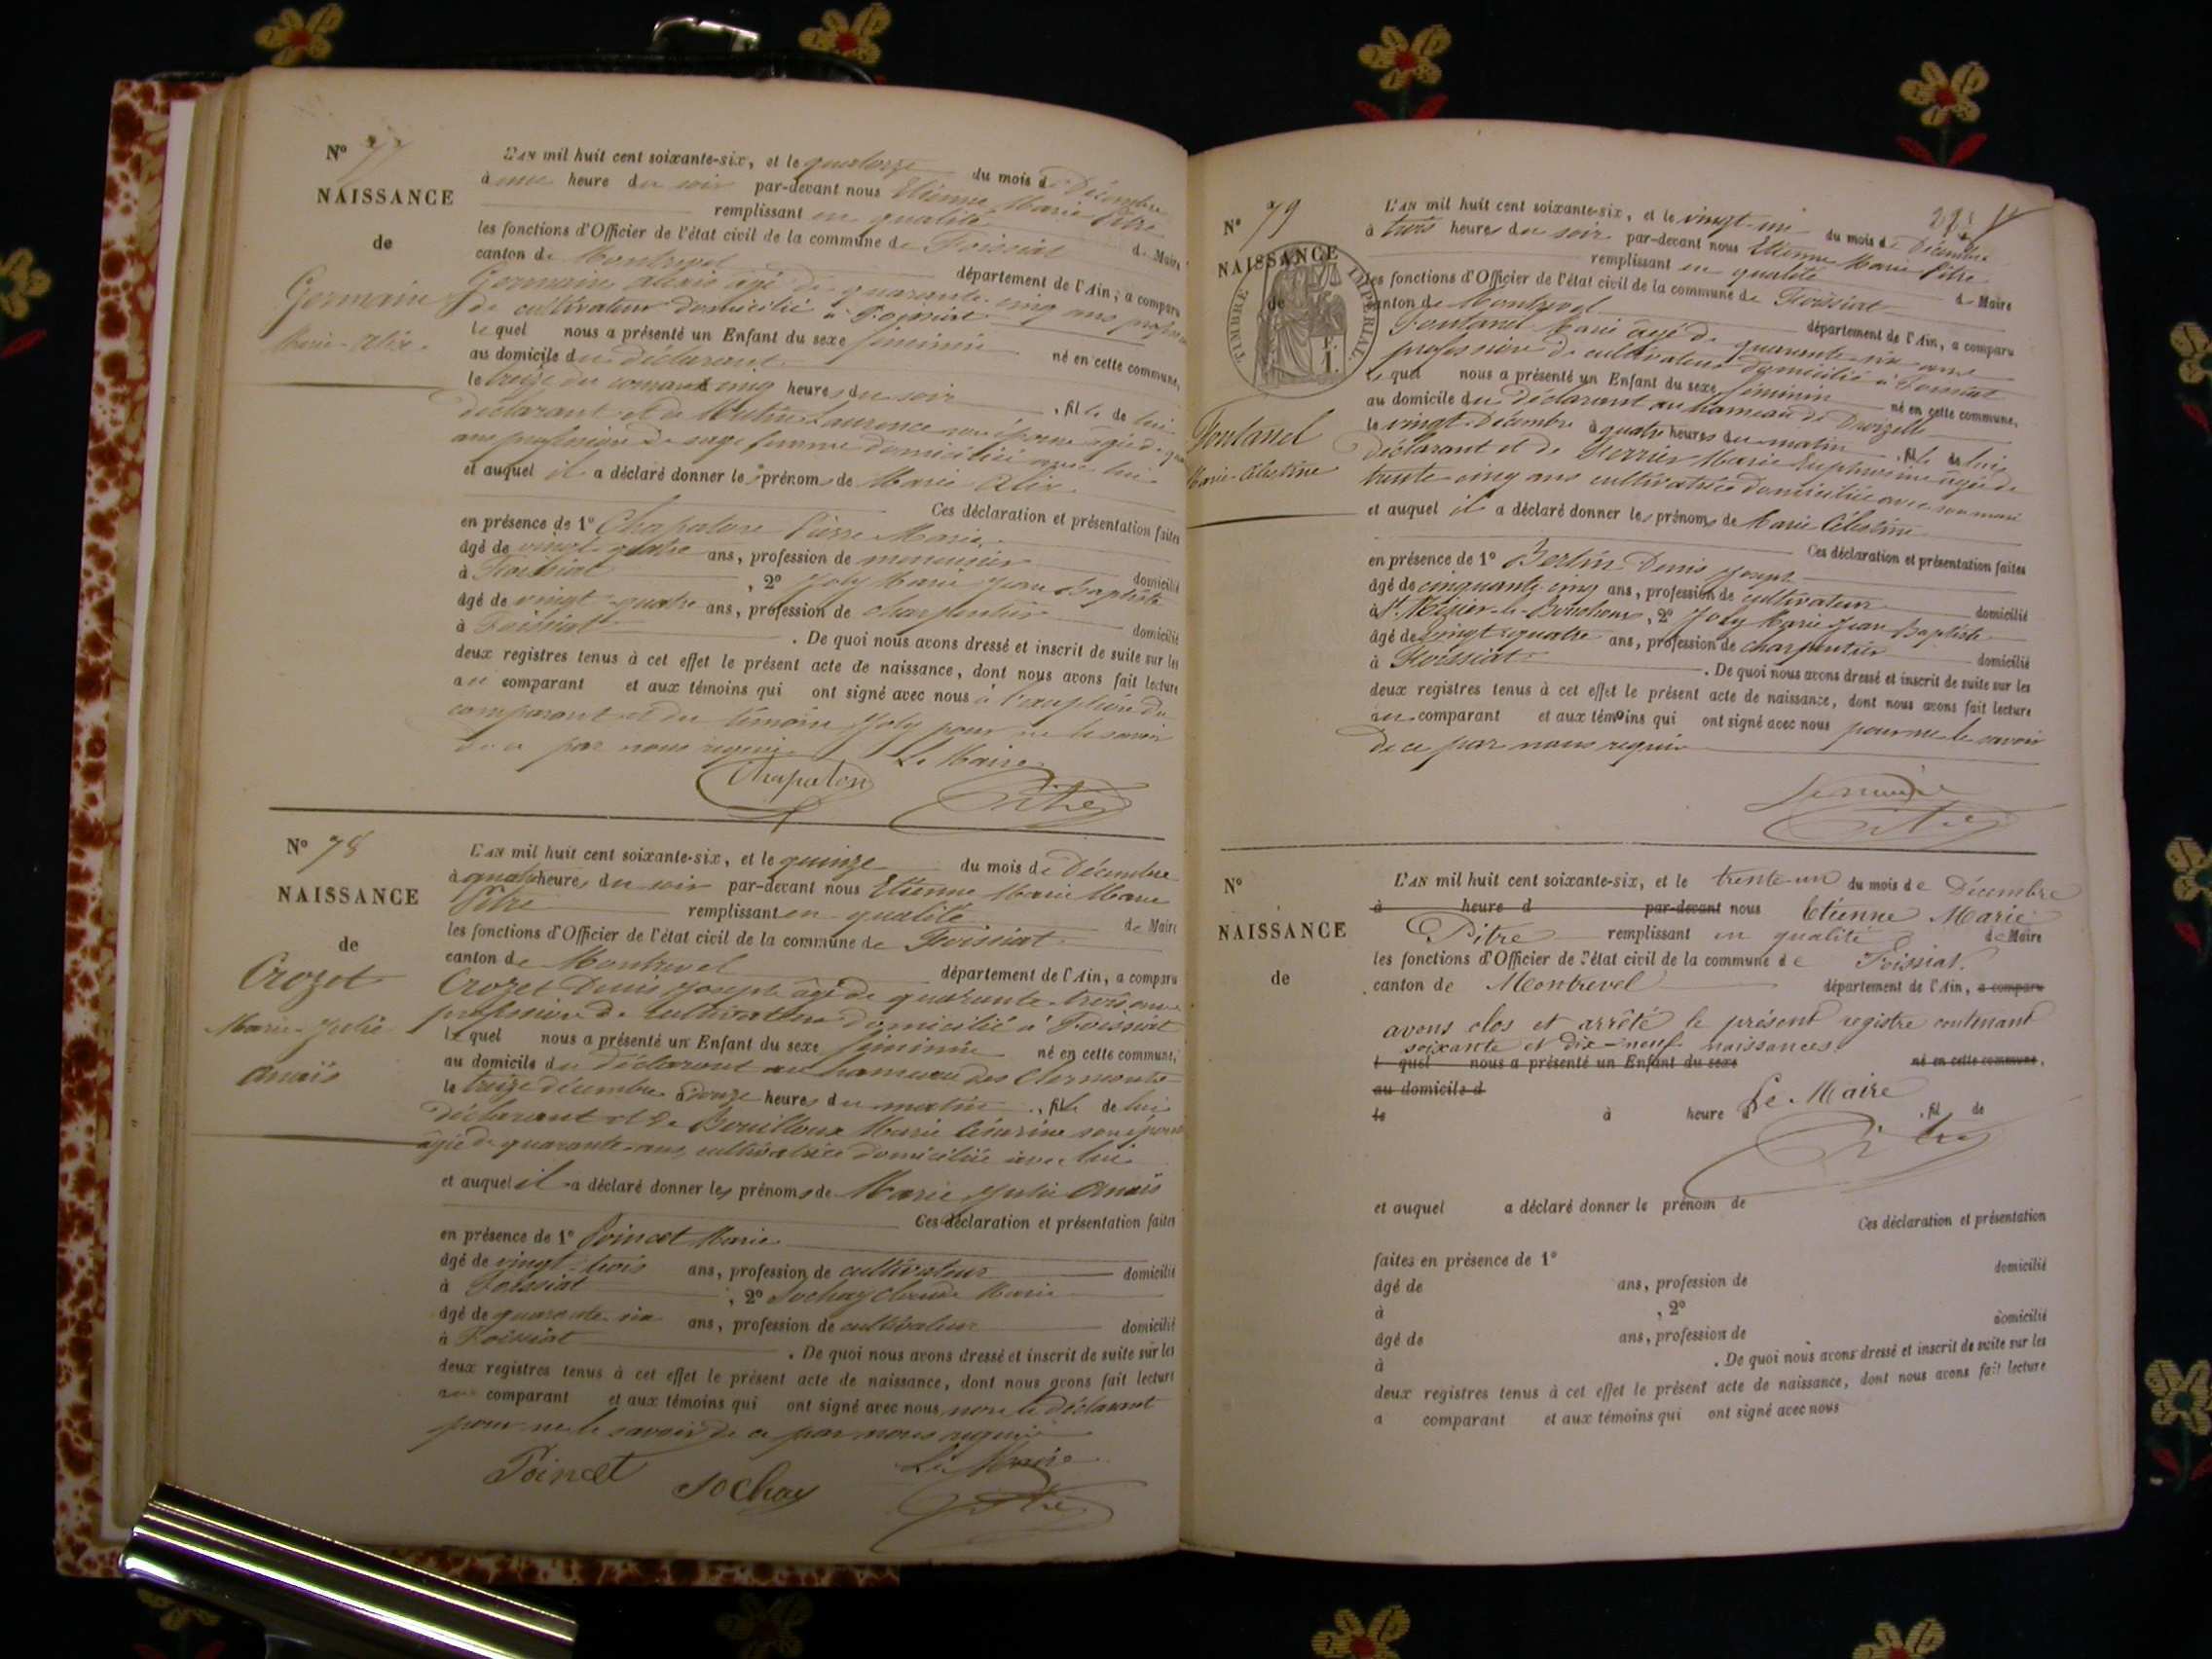 N° 77
NAISSANCE
de
Germain
Marie-Alix.
L'AN mil huit cent soixante-six, et le quatorze du mois de Décembre
à une heure du soir par-devant nous Etienne Marie Pitre
remplissant en qualité de Maire
les fonctions d'Officier de l'état civil de la commune de Foissiat
canton de Montrevel département de l'Ain, a comparu
Germain Alexis âgé de quarante-cinq ans profession
de cultivateur domicilié à Foissiat
lequel nous a présenté un Enfant du sexe féminin né en cette commune,
au domicile du déclarant
le treize du courant cinq heures du soir, fille de lui
déclarant et de Laurence son épouse âgée de
ans profession de sage femme domiciliée avec lui
et auquel il a déclaré donner les prénoms de Marie Alix.
Ces déclaration et présentation faites
en présence de 1° Chapalon Pierre Marie
âgé de vingt-quatre ans, profession de menuisier domicilié
à Foissiat, 2° Joly Marie Jean Baptiste
âgé de vingt-quatre ans, profession de charpentier domicilié
à Foissiat. De quoi nous avons dressé et inscrit de suite sur les
deux registres tenus à cet effet le présent acte de naissance, dont nous avons fait lecture
au comparant et aux témoins qui ont signé avec nous à l'exception du
comparant et du témoin Joly pour ne le savoir
de ce par nous requis
Le Maire
Chapalon Pitre
N° 78
NAISSANCE
de
Crozet
Marie-Julie
Anaïs
L'AN mil huit cent soixante-six, et le quinze du mois de Décembre
à quatre heures du soir par-devant nous Etienne Marie Marie
Pitre remplissant en qualité de Maire
les fonctions d'Officier de l'état civil de la commune de Foissiat
canton de Montrevel département de l'Ain, a comparu
Crozet Denis Joseph âgé de quarante-trois ans
profession de cultivateur domicilié à Foissiat
lequel nous a présenté un Enfant du sexe féminin né en cette commune,
au domicile du déclarant au hameau des Clermonts
le treize décembre à onze heures du matin, fille de lui
déclarant et de Bouilloux Marie Césarine son épouse
âgée de quarante ans, cultivatrice domiciliée avec lui
et auquel il a déclaré donner les prénoms de Marie Julie Anaïs
Ces déclaration et présentation faites
en présence de 1° Poincet Marie
âgé de vingt-trois ans, profession de cultivateur domicilié
à Foissiat, 2° Sochay Claude Marie
âgé de quarante-six ans, profession de cultivateur domicilié
à Foissiat. De quoi nous avons dressé et inscrit de suite sur les
deux registres tenus à cet effet le présent acte de naissance, dont nous avons fait lecture
au comparant et aux témoins qui ont signé avec nous non le déclarant
pour ne le savoir de ce par nous requis
Le Maire
Poincet Sochay Pitre
N° 79
NAISSANCE
de
TIMBRE IMPÉRIAL
1 F.
Fontanel
Marie-Célestine
L'AN mil huit cent soixante-six, et le vingt-un du mois de Décembre
à trois heures du soir par-devant nous Etienne Marie Pitre
remplissant en qualité de Maire
les fonctions d'Officier de l'état civil de la commune de Foissiat
canton de Montrevel département de l'Ain, a comparu
Fontanel Marie âgé de quarante-six ans
profession de cultivateur domicilié à Foissiat
lequel nous a présenté un Enfant du sexe féminin né en cette commune,
au domicile du déclarant au hameau de
le vingt Décembre à quatre heures du matin, fille de lui
déclarant et de Ferrier Marie Euphrosine âgée de
trente-cinq ans cultivatrice domiciliée avec son mari
et auquel il a déclaré donner les prénoms de Marie Célestine
Ces déclaration et présentation faites
en présence de 1° Berlin Denis Joseph
âgé de cinquante-cinq ans, profession de cultivateur domicilié
à St. Nizier-le-Bouchoux, 2° Joly Marie Jean Baptiste
âgé de vingt-quatre ans, profession de charpentier domicilié
à Foissiat. De quoi nous avons dressé et inscrit de suite sur les
deux registres tenus à cet effet le présent acte de naissance, dont nous avons fait lecture
au comparant et aux témoins qui ont signé avec nous pour ne le savoir
de ce par nous requis
Le maire
Pitre
N°
NAISSANCE
de
L'AN mil huit cent soixante-six, et le trente-un du mois de Décembre
à heure d par-devant nous Etienne Marie
Pitre remplissant en qualité de Maire
les fonctions d'Officier de l'état civil de la commune de Foissiat.
canton de Montrevel département de l'Ain, a comparu
avons clos et arrêté le présent registre contenant
soixante et dix-neuf naissances.
l quel nous a présenté un Enfant du sexe né en cette commune,
au domicile d
Le Maire
le à heure d, fil de
Pitre
et auquel a déclaré donner le prénom de
Ces déclaration et présentation
faites en présence de 1°
âgé de ans, profession de domicilié
à , 2°
âgé de ans, profession de domicilié
à . De quoi nous avons dressé et inscrit de suite sur les
deux registres tenus à cet effet le présent acte de naissance, dont nous avons fait lecture
a comparant et aux témoins qui ont signé avec nous